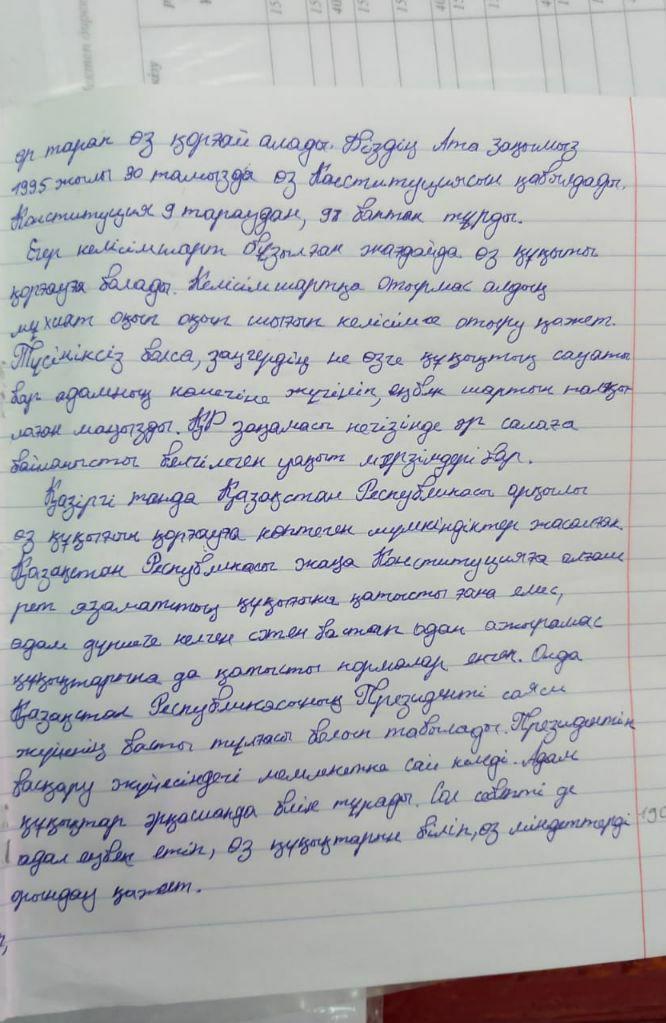 әр тарап өз қорғай алады. Біздің Ата заңымыз
1995 жылы 30 тамызда өз Конституциясын қабылдады.
Конституция 9 тараудан, 98 баптан тұрды.
Егер келісімшарт бұзылған жағдайда өз құқығы
қорғауға болады. Келісімшартқа отырмас алдың
мұхиат оқып оқып шығып келісімге отыру қажет.
Түсініксіз болса, заңгердің не өзге құқықтық сауаты
бар адамның көмегіне жүгініп, еңбек шартын талқы
лаған маңызды. ҚР заңамасы негізінде әр салаға
байланысты белгілеген уақыт мерзімдері бар.
Қазіргі таңда Қазақстан Республикасы арқылы
өз құқығын қорғауға көптеген мүмкіндіктер жасалған.
Қазақстан Республикасы жаңа Конституцияға алғаш
рет азаматтың құқығына қатысты ғана емес,
адам дүниеге келген сәтен бастап адан ажырамас
құқықтарына да қатысты нормалар енген. Онда
Қазақстан Республикасының Президенті саяси
жүйенің басты тұлғасы болып табылады. Президентік
басқару жүйесіндегі мемлекетке сай келеді. Адам
құқықтар әрқашанда биік тұрады. Сол себепті де
адал еңбек етіп, өз құқықтарын біліп, өз міндеттерді
орындау қажет.